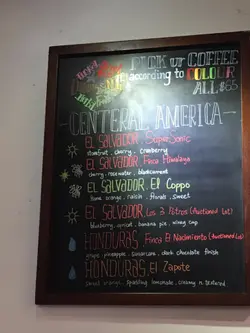 PICK ur COFFEE
according to COLOUR
ALL $65
CENTERAL AMERICA
EL SALVADOR SuperSonic
starfruit, cherry, cranberry
EL SALVADOR Finca Himalaya
cherry, rosewater, blackcurrant
EL SALVADOR El Coppo
orange, raisin, florals, sweet
EL SALVADOR Los 3 Potros (Auctioned Lot)
blueberry, apricot, banana pie, winey cup
HONDURAS Finca El Nacimiento (Auctioned Lot)
grape, pineapple, sugarcane, dark chocolate finish
HONDURAS El Zapote
sweet orange, sparkling lemonade, creamy n textured